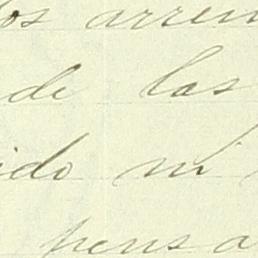 los arren
de las
ido ni
pensa